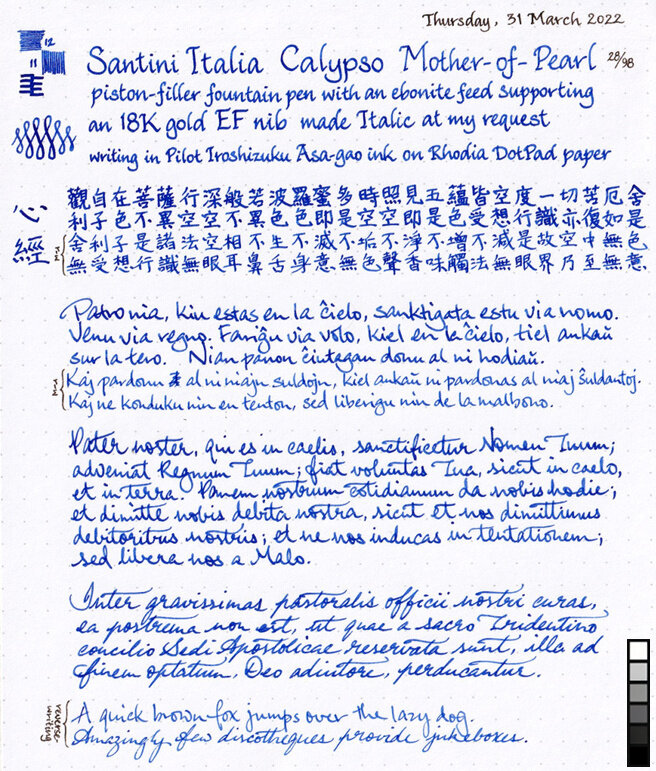 Thursday, 31 March 2022
12
11
Santini Italia Calypso Mother-of-Pearl 28/98
piston-filler fountain pen with an ebonite feed supporting
an 18K gold EF nib made Italic at my request
writing in Pilot Iroshizuku Asa-gao ink on Rhodia DotPad paper
心經
觀自在菩薩行深般若波羅蜜多時照見五蘊皆空度一切苦厄舍
利子色不異空空不異色色即是空空即是色受想行識亦復如是
舍利子是諸法空相不生不滅不垢不淨不增不減是故空中無色
無受想行識無眼耳鼻舌身意無色聲香味觸法無眼界乃至無意
Patro nia, kiu estas en la ĉielo, sanktigata estu via nomo.
Venu via regno. Fariĝu via volo, kiel en la ĉielo, tiel ankaŭ
sur la tero. Nian panon ĉiutagan donu al ni hodiaŭ.
Kaj pardonu al ni niajn ŝuldojn, kiel ankaŭ ni pardonas al niaj ŝuldantoj.
Kaj ne konduku nin en tenton, sed liberigu nin de la malbono.
Pater noster, qui es in caelis, sanctificetur Nomen Tuum;
adveniat Regnum Tuum; fiat voluntas Tua, sicut in caelo,
et in terra. Panem nostrum cotidianum da nobis hodie;
et dimitte nobis debita nostra, sicut et nos dimittimus
debitoribus nostris; et ne nos inducas in tentationem;
sed libera nos a Malo.
Inter gravissimas pastoralis officii nostri curas,
ea postrema non est, ut quae a sacro Tridentino
concilio Sedi Apostolicae reservata sunt, illa ad
finem optatum, Deo adiutore, perducantur.
reverse writing
A quick brown fox jumps over the lazy dog.
Amazingly few discotheques provide jukeboxes.